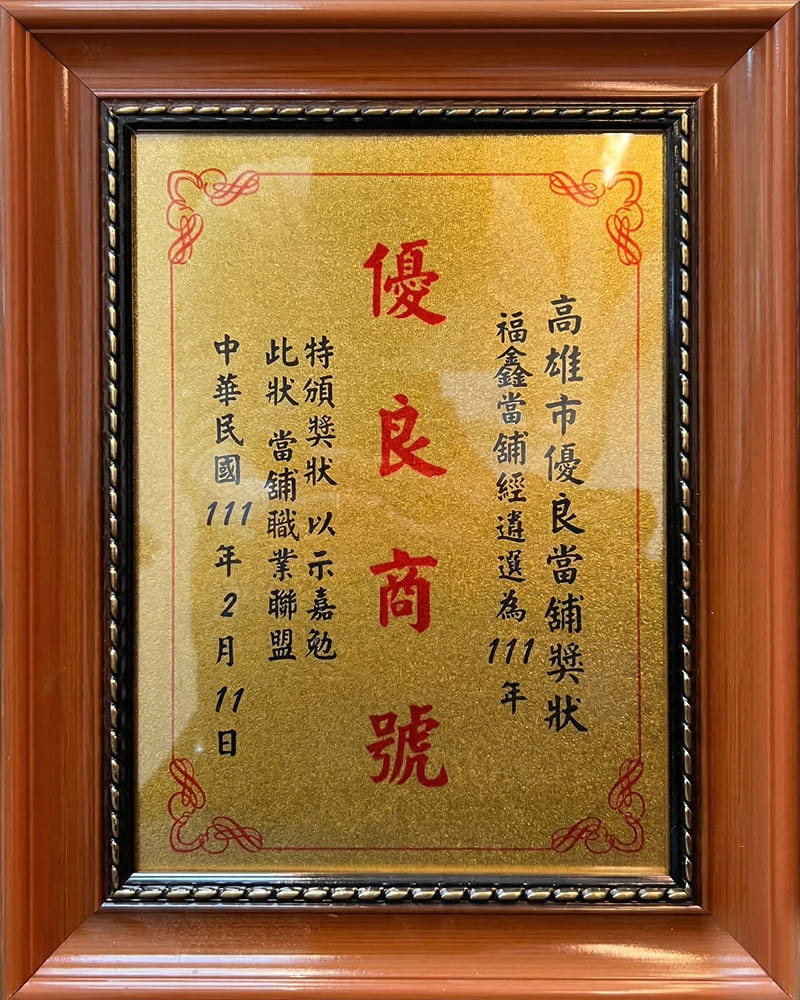 高雄市優良當舖獎狀
福鑫當舖經遴選為111年
優良商號
特頒獎狀 以示嘉勉
此狀 當舖職業聯盟
中華民國111年2月11日